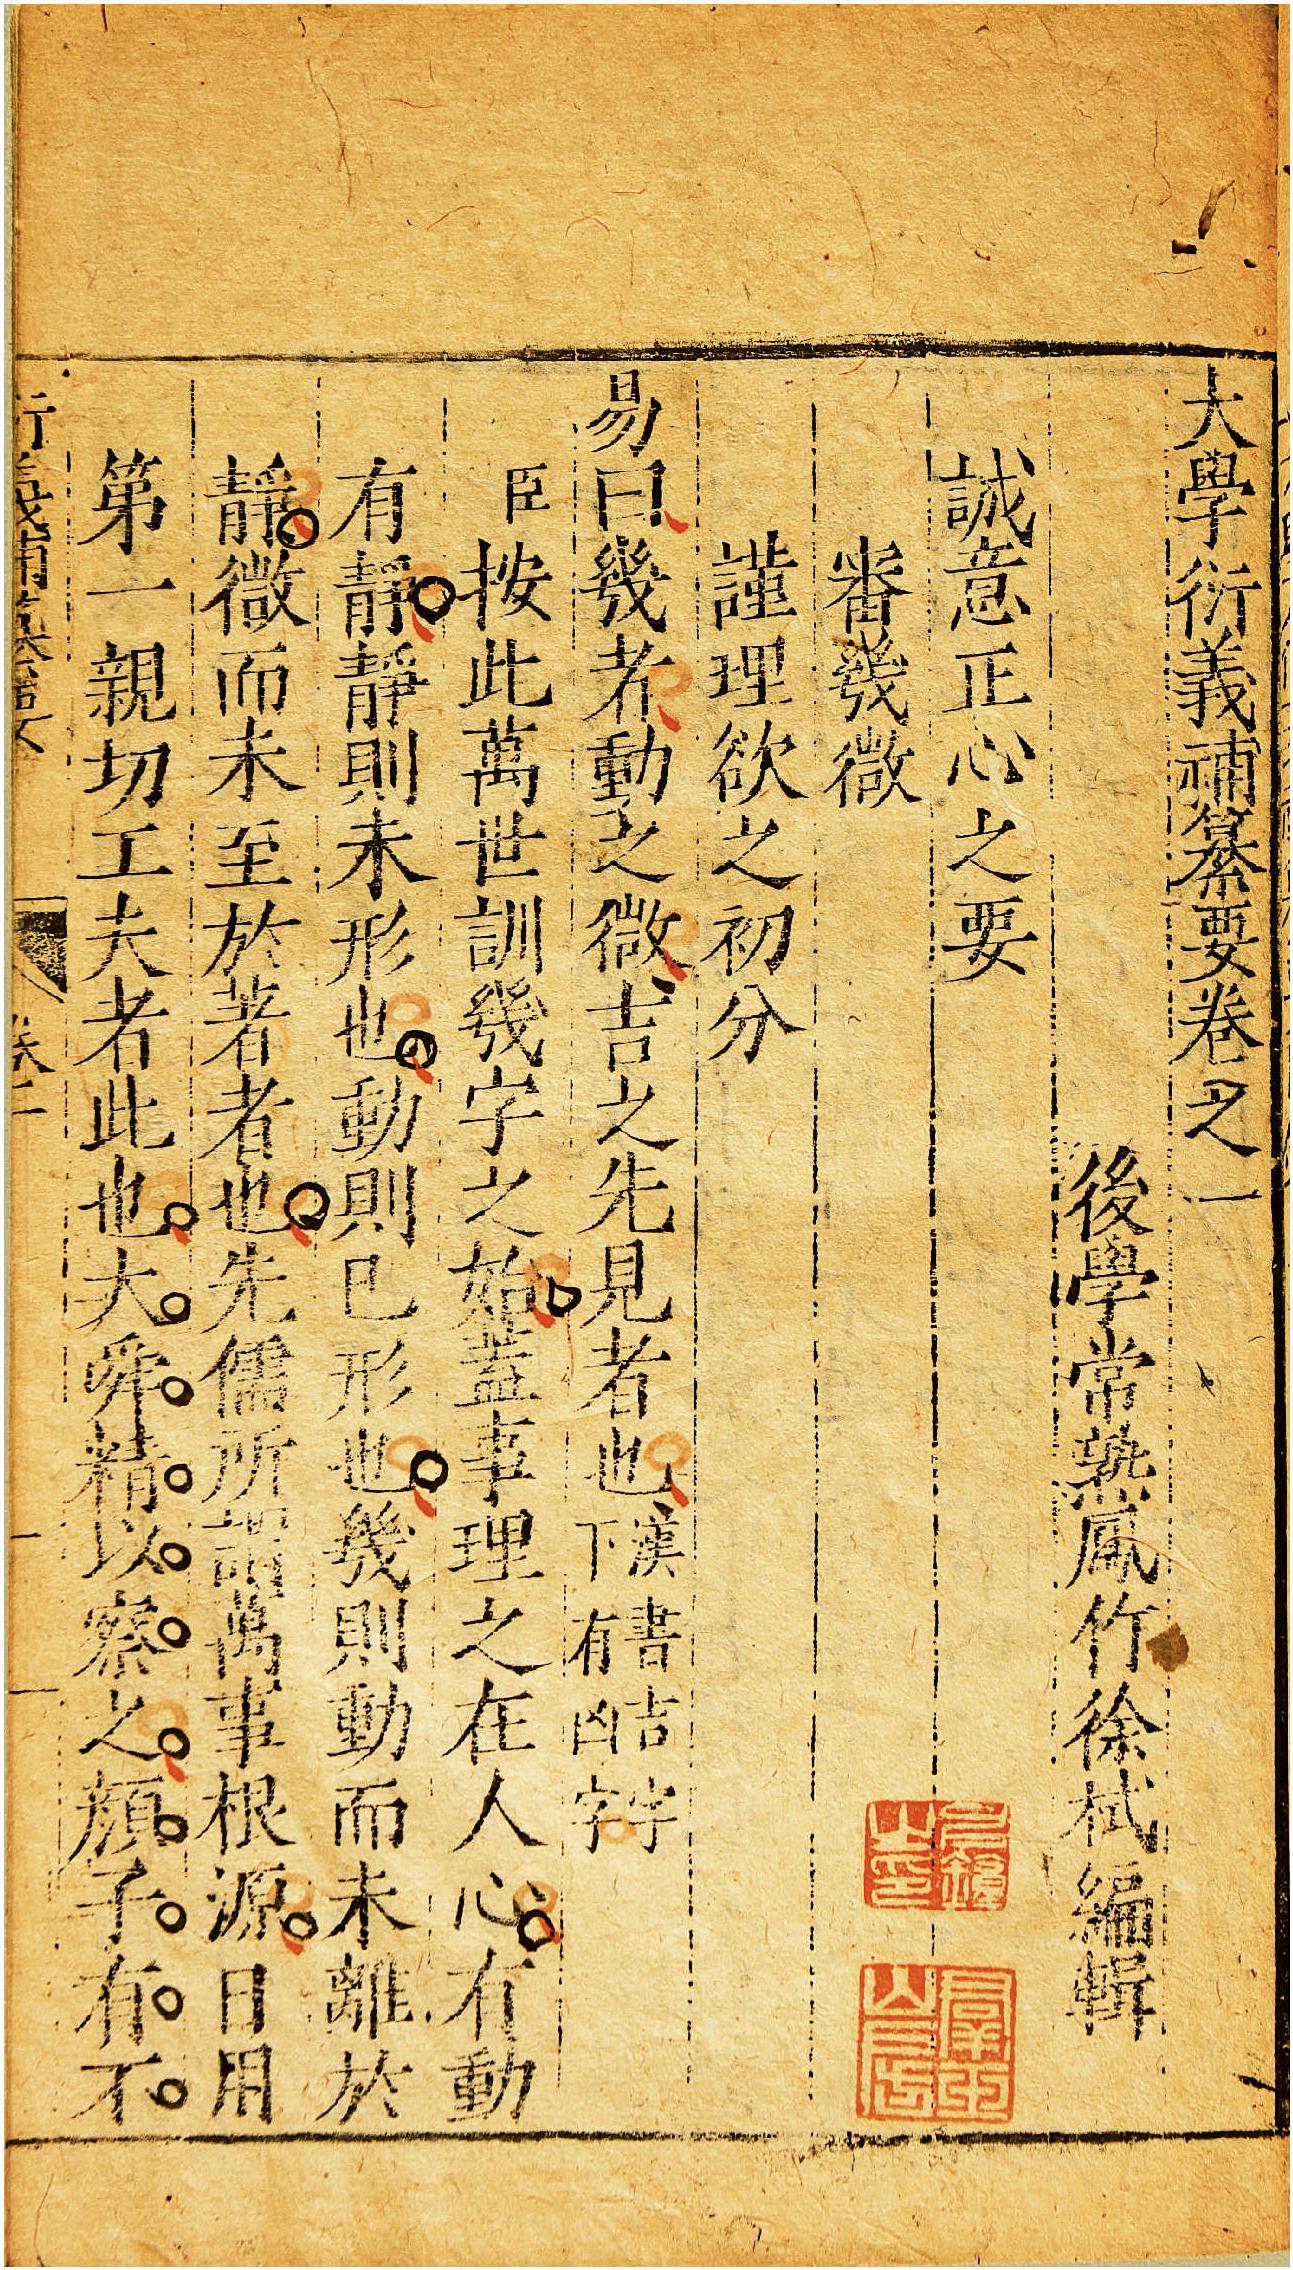 大學衍義補纂要卷之一
後學常熟鳳竹徐栻編輯
誠意正心之要
審幾微
謹理欲之初分
易曰幾者動之微吉之先見者也漢書吉字下有凶字
臣按此萬世訓幾字之始葢事理之在人心有動
有靜靜則未形也動則已形也幾則動而未離於
靜微而未至於著者也先儒所謂萬事根源日用
第一親切工夫者此也大舜精以察之顔子有不